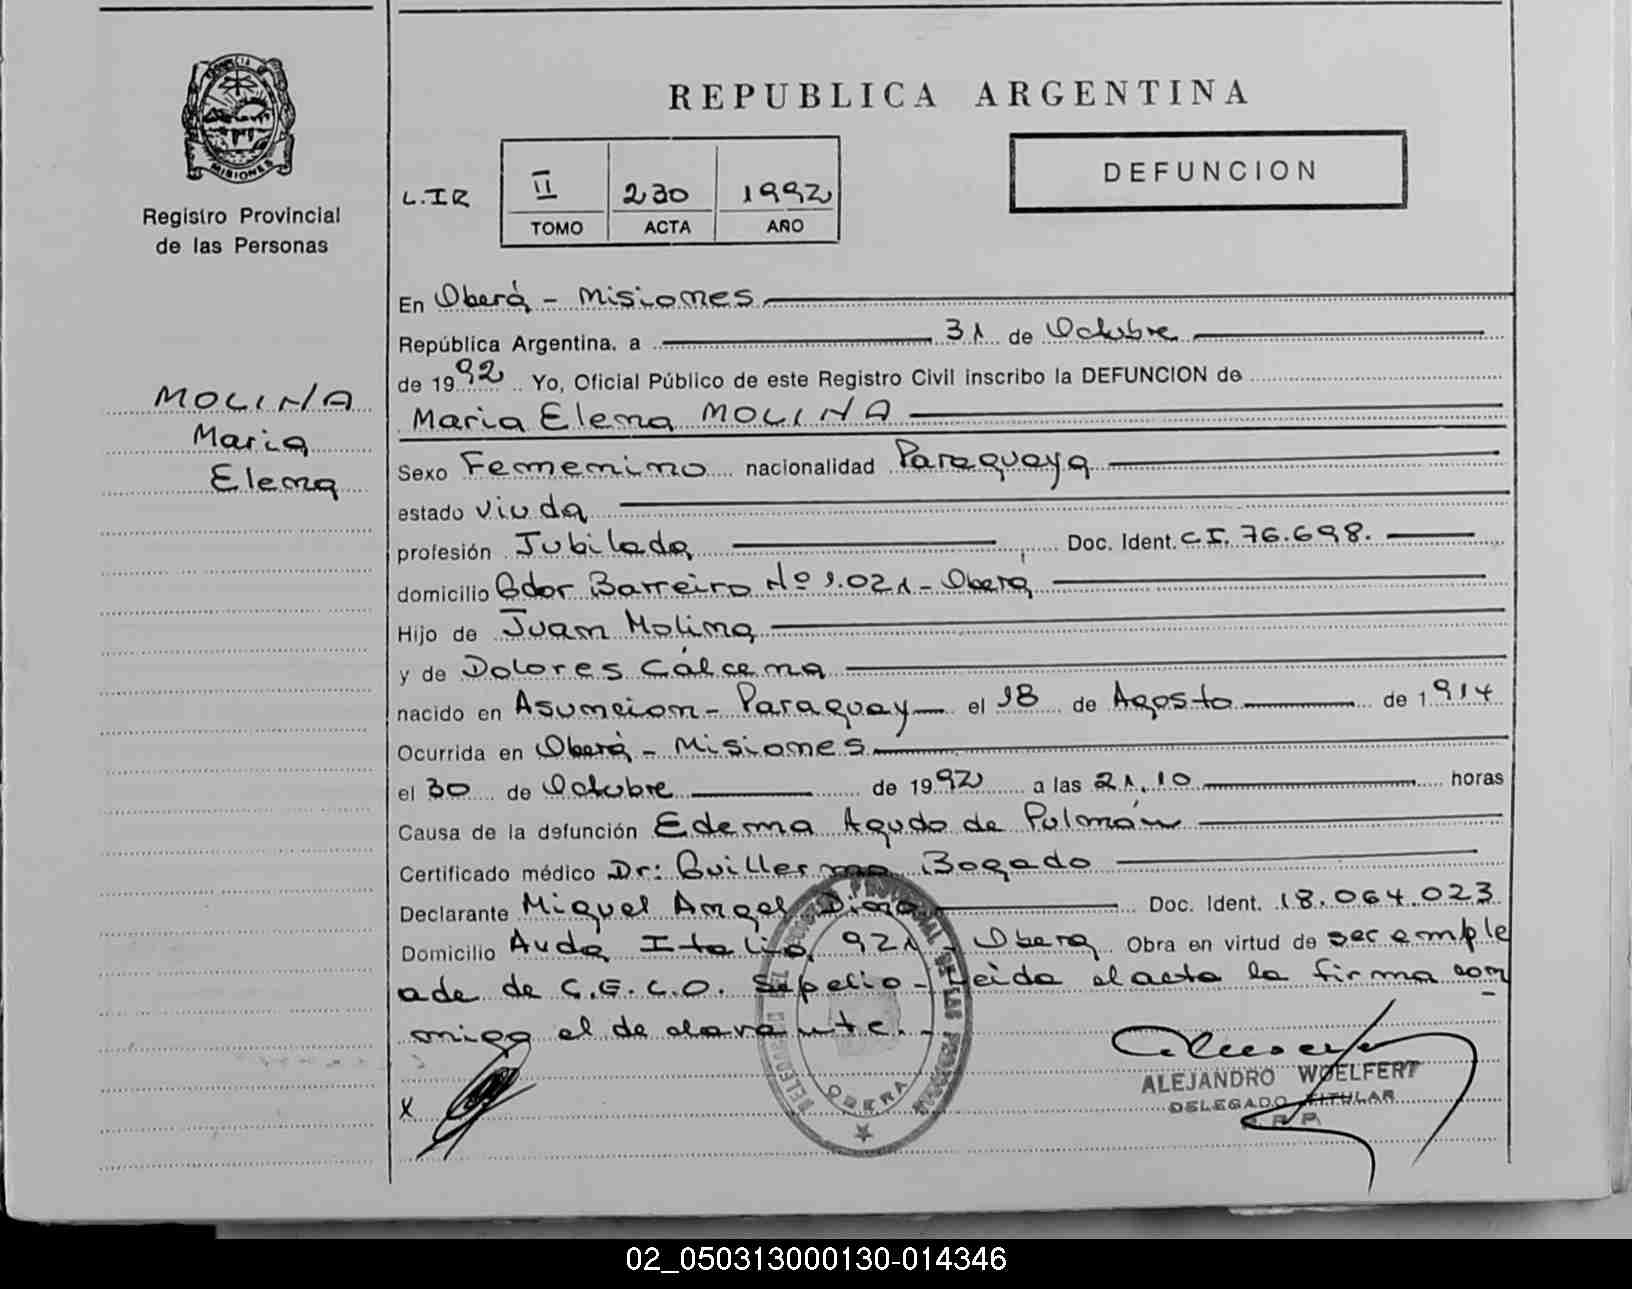 PROVINCIA DE
MISIONES
Registro Provincial
de las Personas
MOLINA
Maria
Elena
REPUBLICA ARGENTINA
DEFUNCION
L.IR
II 230 1992
TOMO ACTA AÑO
En Oberá - Misiones
República Argentina, a 31 de Octubre
de 1992 Yo, Oficial Público de este Registro Civil inscribo la DEFUNCION de
Maria Elena MOLINA
Sexo Femenino nacionalidad Paraguaya
estado viuda
profesión Jubilada Doc. Ident. C.I. 76.698.
domicilio Gdor Barreiro Nº 1.021 - Oberá
Hijo de Juan Molina
y de Dolores Cálcena
nacido en Asuncion - Paraguay el 18 de Agosto de 1914
Ocurrida en Oberá - Misiones
el 30 de Octubre de 1992 a las 21,10 horas
Causa de la defunción Edema Agudo de Pulmón
Certificado médico Dr: Guillermo Bogado
Declarante Miguel Angel Doc. Ident. 18.064.023
Domicilio Avda Italia 921 - Obera Obra en virtud de ser emple
ado de C.E.L.O. Sepelio - Leida el acta la firma con
migo el declarante. -
X
OBERA
ALEJANDRO WOELFERT
DELEGADO TITULAR
R. P. P.
02_050313000130-014346